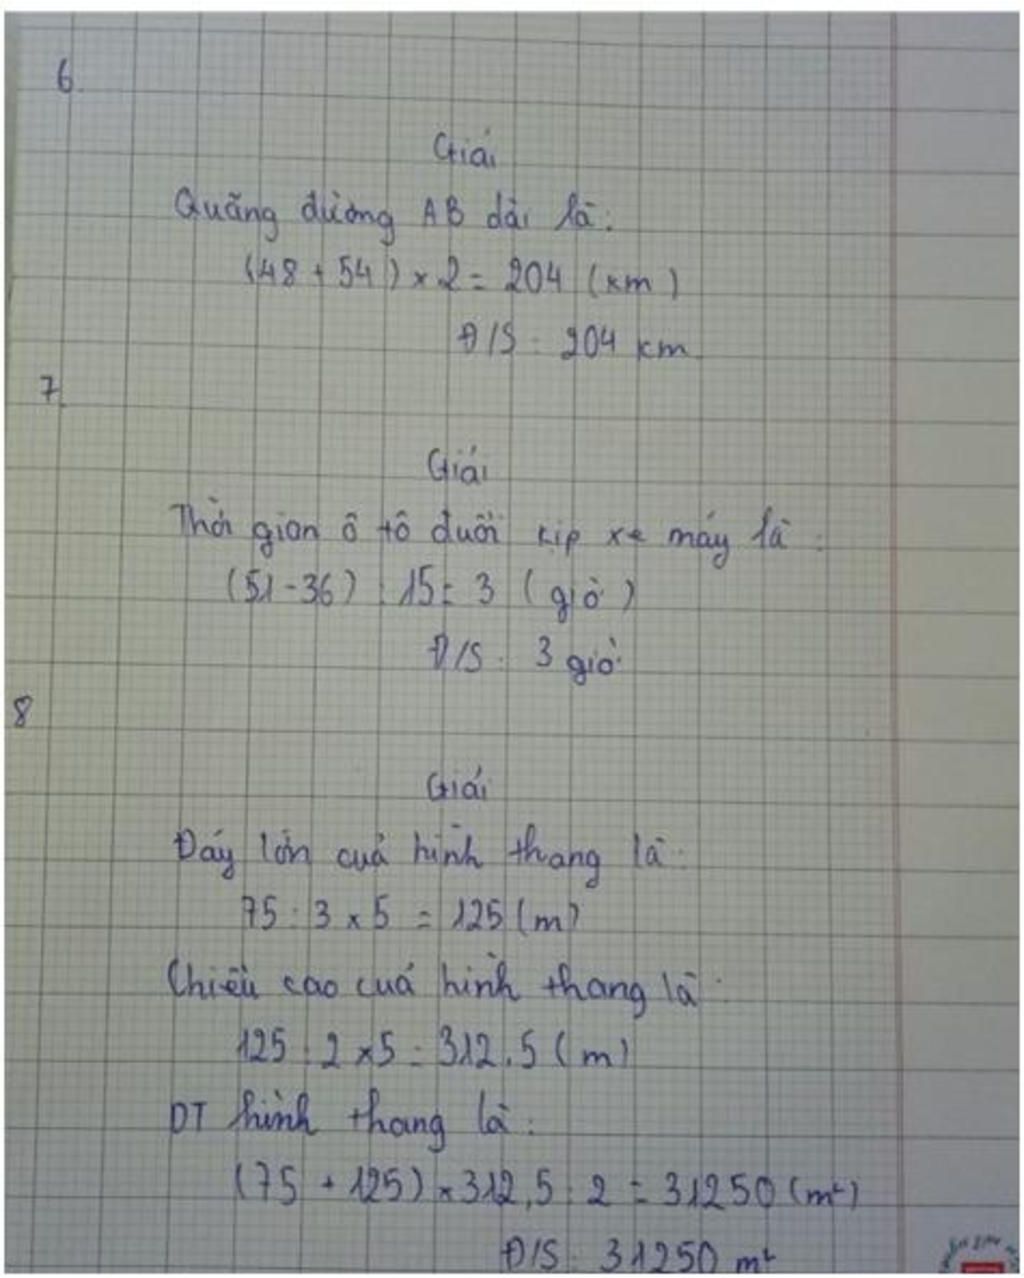 6.
Giải
Quãng đường AB dài là:
(48 + 54) × 2 = 204 (km)
Đ/S : 204 km
7.
Giải
Thời gian ô tô đuổi kịp xe máy là :
(51 - 36) : 15 = 3 (giờ)
Đ/S : 3 giờ
8
Giải
Đáy lớn của hình thang là :
75 : 3 × 5 = 125 (m)
Chiều cao của hình thang là :
125 : 2 × 5 = 312,5 (m)
DT hình thang là :
(75 + 125) × 312,5 : 2 = 31250 (m²)
Đ/S : 31250 m²